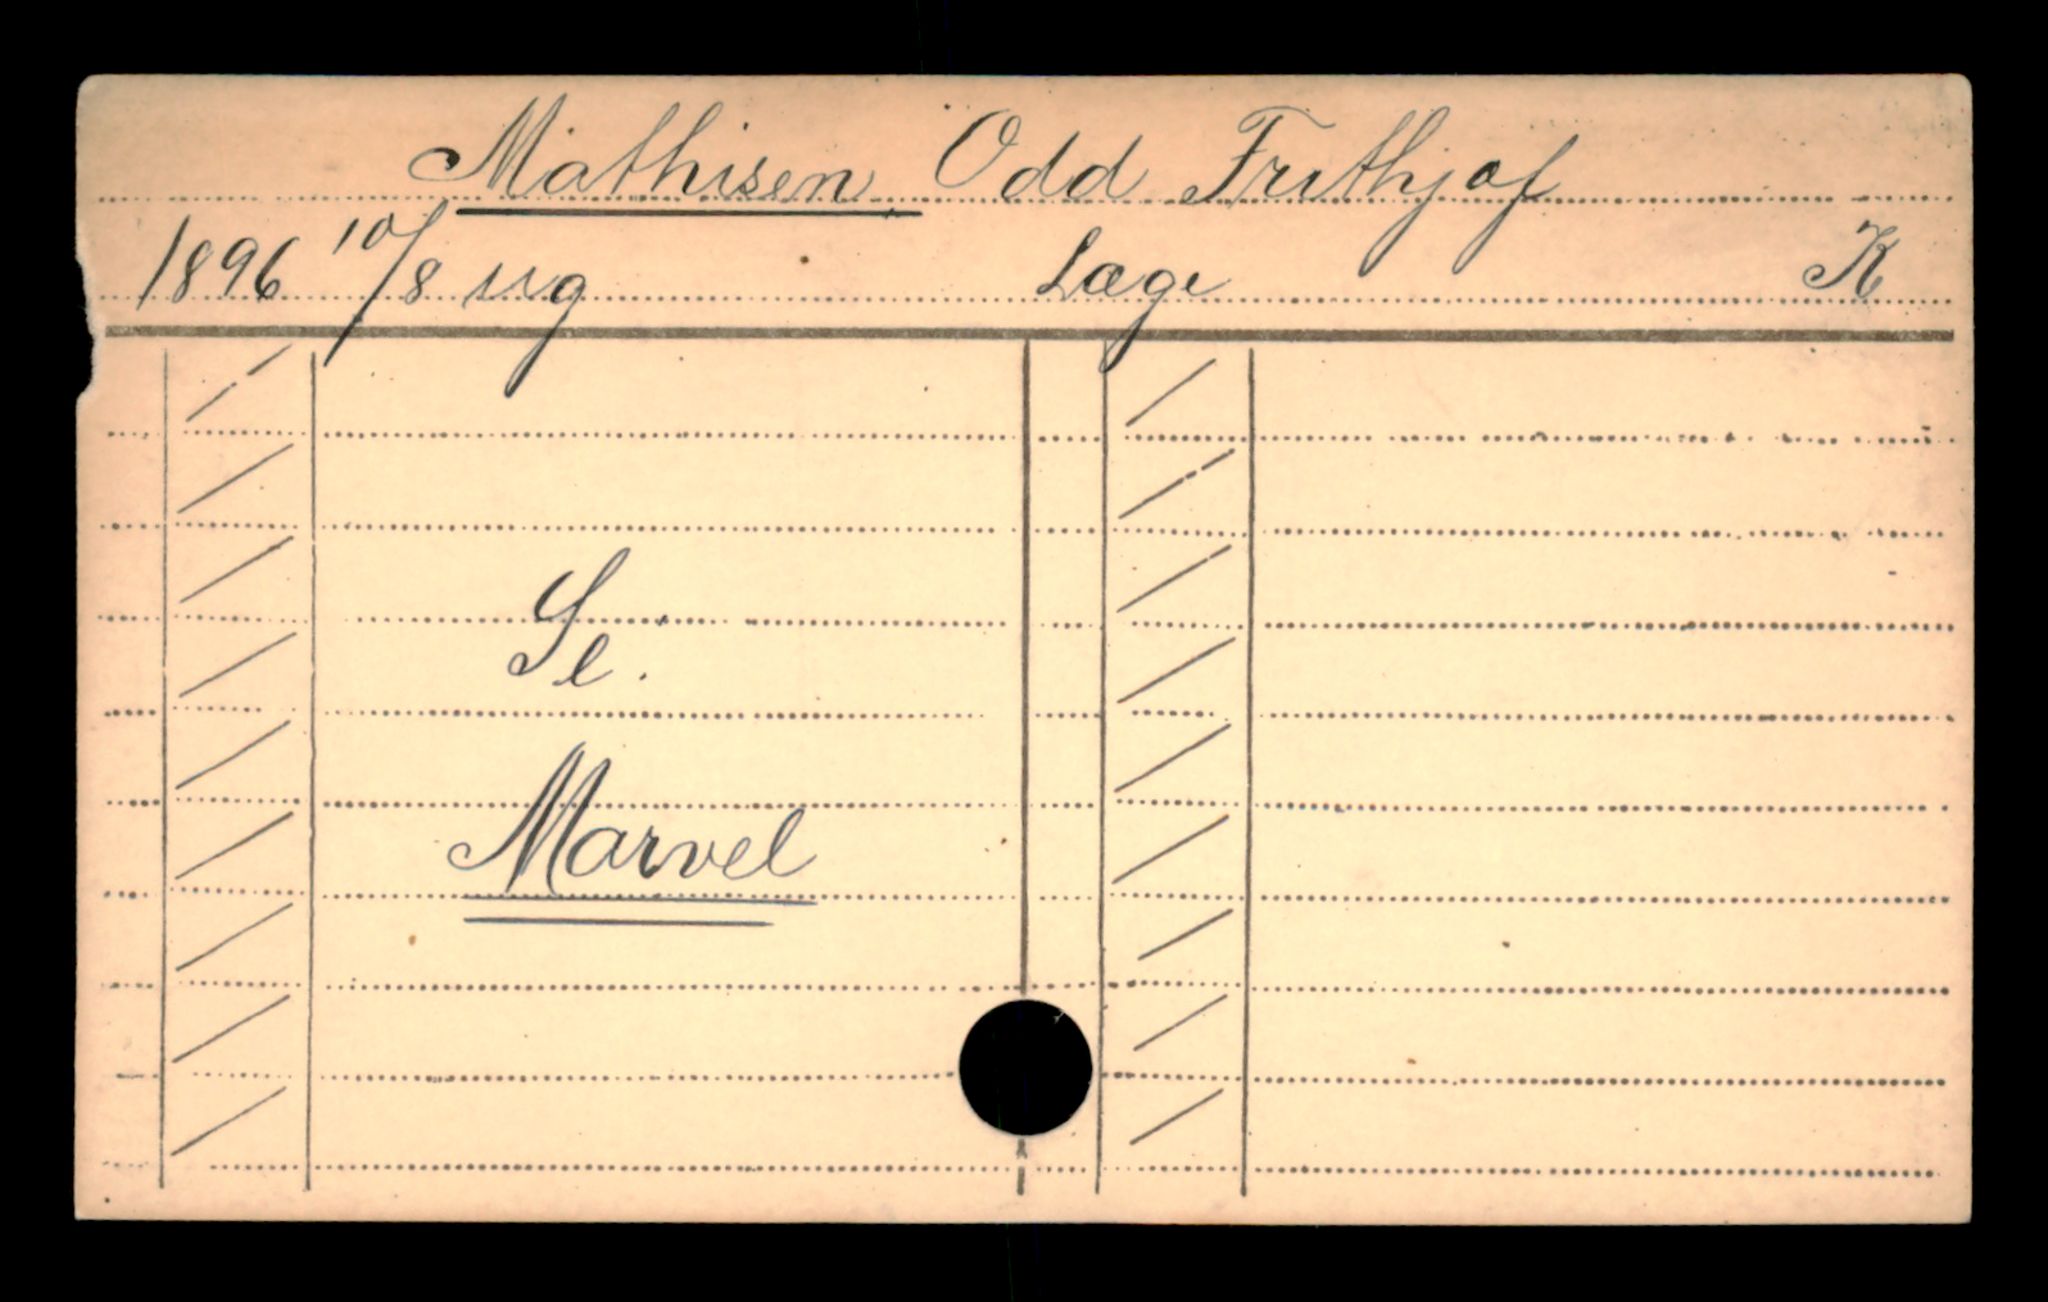 Mathisen, Odd Frithjof
1896 10/8 ug Læge K
Se.
Marvel